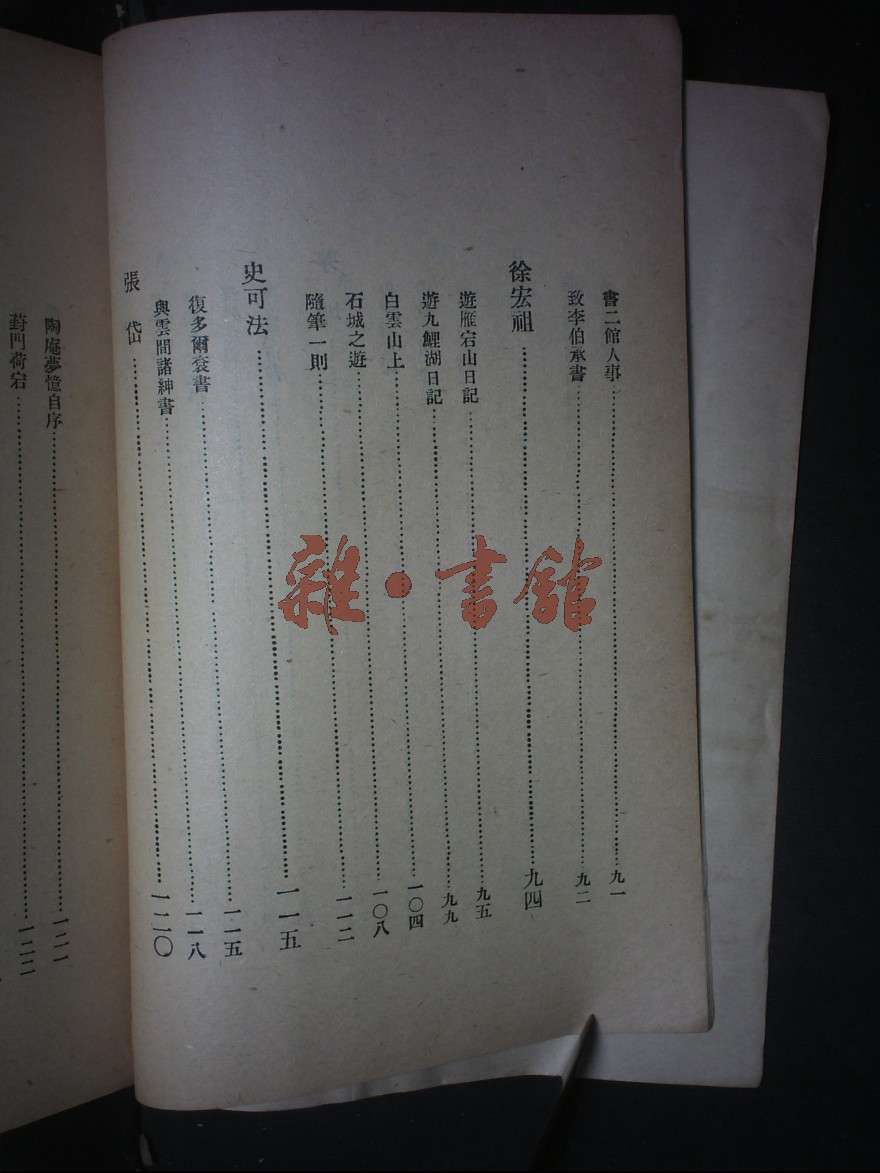 書二館人事……九一
致李伯承書……九二
徐宏祖……九四
遊雁宕山日記……九五
遊九鯉湖日記……九九
白雲山上……一〇四
石城之遊……一〇八
隨筆一則……一一二
史可法……一一五
復多爾袞書……一一五
與雲間諸紳書……一一八
張岱……一二〇
陶庵夢憶自序……一二一
葑門荷宕……一二二
雜·書館